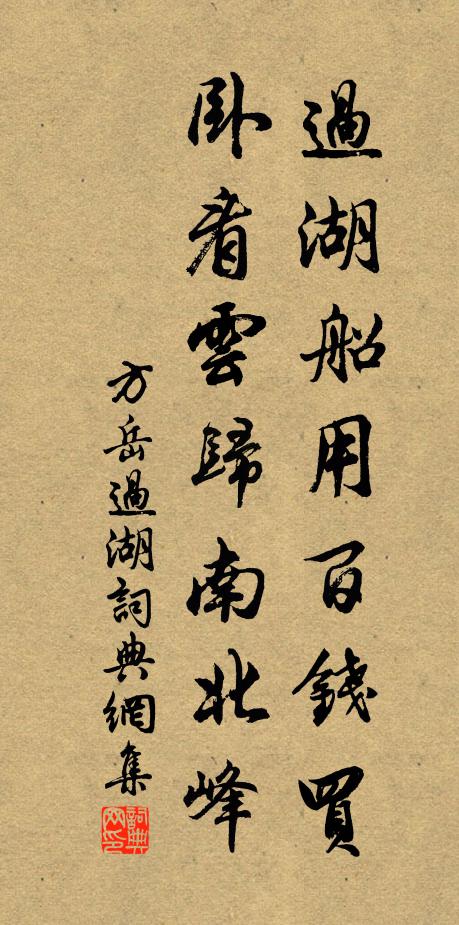 過湖船用百錢買
臥看雲歸南北峰
方岳過湖詞典網集
詞典網印